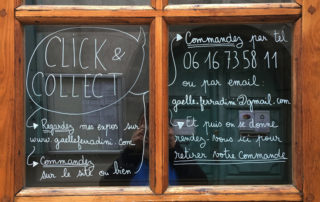 CLICK &
COLLECT
→ Regardez mes expos sur
www.gaelleferradini.com
→ Commandez
sur le site ou bien
→ Commandez par tel
06 16 73 58 11
ou par email:
gaelle.ferradini@gmail.com
→ Et puis on se donne
rendez-vous ici pour
retirer votre commande